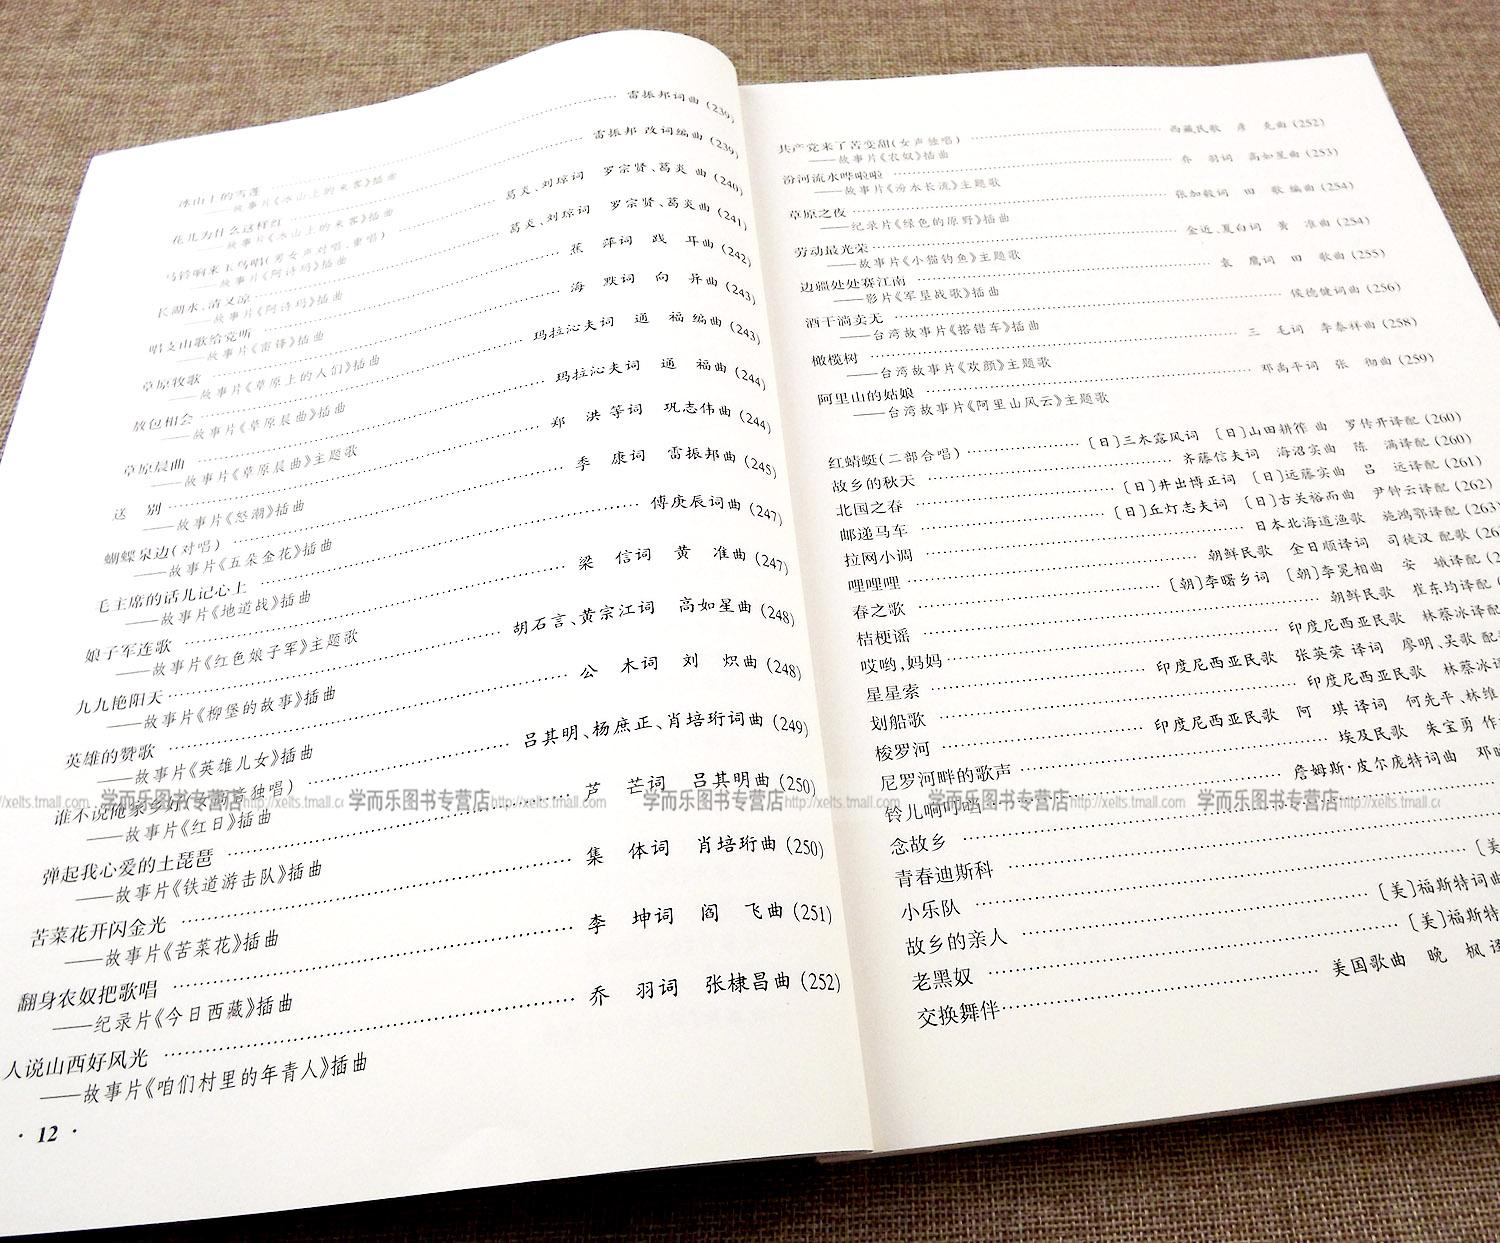 冰山上的雪莲 …… 雷振邦词曲 (239)
——故事片《冰山上的来客》插曲
花儿为什么这样红 …… 雷振邦 改词编曲 (239)
——故事片《冰山上的来客》插曲
马铃响来玉鸟唱(男女声对唱、重唱) …… 葛炎、刘琼词 罗宗贤、葛炎 曲 (240)
——故事片《阿诗玛》插曲
长湖水,清又凉 …… 葛炎、刘琼词 罗宗贤、葛炎曲 (241)
——故事片《阿诗玛》插曲
唱支山歌给党听 …… 蕉 萍词 践 耳曲 (242)
——故事片《雷锋》插曲
草原牧歌 …… 海 默词 向 异曲 (243)
——故事片《草原上的人们》插曲
敖包相会 …… 玛拉沁夫词 通 福 编曲 (243)
——故事片《草原晨曲》插曲
草原晨曲 …… 玛拉沁夫词 通 福曲 (244)
——故事片《草原晨曲》主题歌
送 别 …… 郑 洪 等词 巩志伟曲 (244)
——故事片《怒潮》插曲
蝴蝶泉边(对唱) …… 季 康词 雷振邦曲 (245)
——故事片《五朵金花》插曲
毛主席的话儿记心上 …… 傅庚辰词曲 (247)
——故事片《地道战》插曲
娘子军连歌 …… 梁 信词 黄 准曲 (247)
——故事片《红色娘子军》主题歌
九九艳阳天 …… 胡石言、黄宗江词 高如星曲 (248)
——故事片《柳堡的故事》插曲
英雄的赞歌 …… 公 木词 刘 炽曲 (248)
——故事片《英雄儿女》插曲
谁不说俺家乡好(女高音独唱) …… 吕其明、杨庶正、肖培珩词曲 (249)
——故事片《红日》插曲
弹起我心爱的土琵琶 …… 芦 芒词 吕其明曲 (250)
——故事片《铁道游击队》插曲
苦菜花开闪金光 …… 集 体词 肖培珩曲 (250)
——故事片《苦菜花》插曲
翻身农奴把歌唱 …… 李 坤词 阎 飞曲 (251)
——纪录片《今日西藏》插曲
人说山西好风光 …… 乔 羽词 张棣昌曲 (252)
——故事片《咱们村里的年青人》插曲
· 12 ·
共产党来了苦变甜(女声独唱) …… 西藏民歌 彦 克曲 (252)
——故事片《农奴》插曲
汾河流水哗啦啦 …… 乔 羽词 高如星曲 (253)
——故事片《汾水长流》主题歌
草原之夜 …… 张加毅词 田 歌 编曲 (254)
——纪录片《绿色的原野》插曲
劳动最光荣 …… 金近、夏白词 黄 准曲 (254)
——故事片《小猫钓鱼》主题歌
边疆处处赛江南 …… 袁 鹰词 田 歌曲 (255)
——影片《军垦战歌》插曲
酒干淌卖无 …… 侯德健词曲 (256)
——台湾故事片《搭错车》插曲
橄榄树 …… 三 毛词 李泰祥曲 (258)
——台湾故事片《欢颜》主题歌
阿里山的姑娘 …… 邓禹平词 张 彻曲 (259)
——台湾故事片《阿里山风云》主题歌
红蜻蜓(二部合唱) …… [日]三木露风词 [日]山田耕筰 曲 罗传开译配 (260)
故乡的秋天 …… 齐藤信夫词 海沼实曲 陈 满译配 (260)
北国之春 …… [日]井出博正词 [日]远藤实曲 吕 远译配 (261)
邮递马车 …… [日]丘灯志夫词 [日]古关裕而曲 尹钟云译配 (262)
拉网小调 …… 日本北海道渔歌 施鸿鄂译配 (263)
哩哩哩 …… 朝鲜民歌 金日顺译词 司徒汉 配歌 (26
春之歌 …… [朝]李曙乡词 [朝]李冕相曲 安 娥译配 (2
桔梗谣 …… 朝鲜民歌 崔东均译配 (
哎哟,妈妈 …… 印度尼西亚民歌 林蔡冰译配
星星索 …… 印度尼西亚民歌 张英荣 译词 廖明、吴歌 配
划船歌 …… 印度尼西亚民歌 林蔡冰译
梭罗河 …… 印度尼西亚民歌 阿 琪 译词 何先平、林维
尼罗河畔的歌声 …… 埃及民歌 朱宝勇 作
铃儿响叮当 …… 詹姆斯·皮尔庞特词曲 邓
念故乡 ……
青春迪斯科 ……
小乐队 …… [美
故乡的亲人 …… [美]福斯特词曲
老黑奴 …… [美]福斯特
交换舞伴 …… 美国歌曲 晚 枫 译
学而乐图书专营店http://xelts.tmall.com